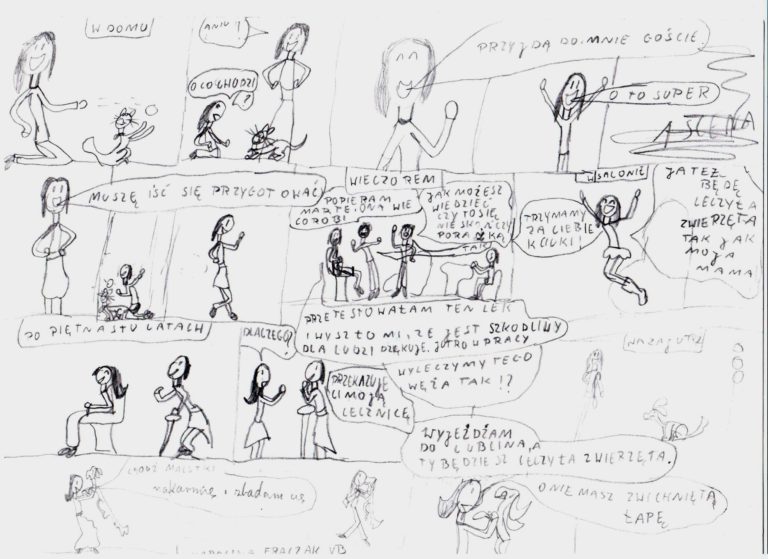 W DOMU
ANIU?
O CO CHODZI
?
PRZYJDĄ DO MNIE GOŚCIE
O TO SUPER
SCENA
MUSZĘ IŚĆ SIĘ PRZYGOTOWAĆ
WIECZOREM
POPIERAM
MARTĘ, ONA WIE
CO ROBI
JAK MOŻESZ
WIEDZIEĆ
CZY TO SIĘ
NIE SKOŃCZY
PORAŻKĄ
TAK
W SALONIE
TRZYMAMY
ZA CIEBIE
KCIUKI!
JA TEŻ
BĘDĘ
LECZYŁA
ZWIERZĘTA
TAK JAK
MOJA
MAMA
PO PIĘTNASTU LATACH
PRZETESTOWAŁAM TEN LEK
I WYSZŁO MI, ŻE JEST SZKODLIWY
DLA LUDZI DZIĘKUJĘ. JUTRO W PRACY
WYLECZYMY TEGO
WĘŻA TAK!?
DLACZEGO?
PRZEKAZUJĘ
CI MOJĄ
LECZNICĘ
WYJEŻDŻAM
DO LUBLINA, A
TY BĘDZIESZ LECZYŁA ZWIERZĘTA.
NAZAJUTRZ
CHODŹ MALUTKI
nakarmię i zbadam cię
O NIE MASZ ZWICHNIĘTĄ
ŁAPĘ
FRĄCZAK VB